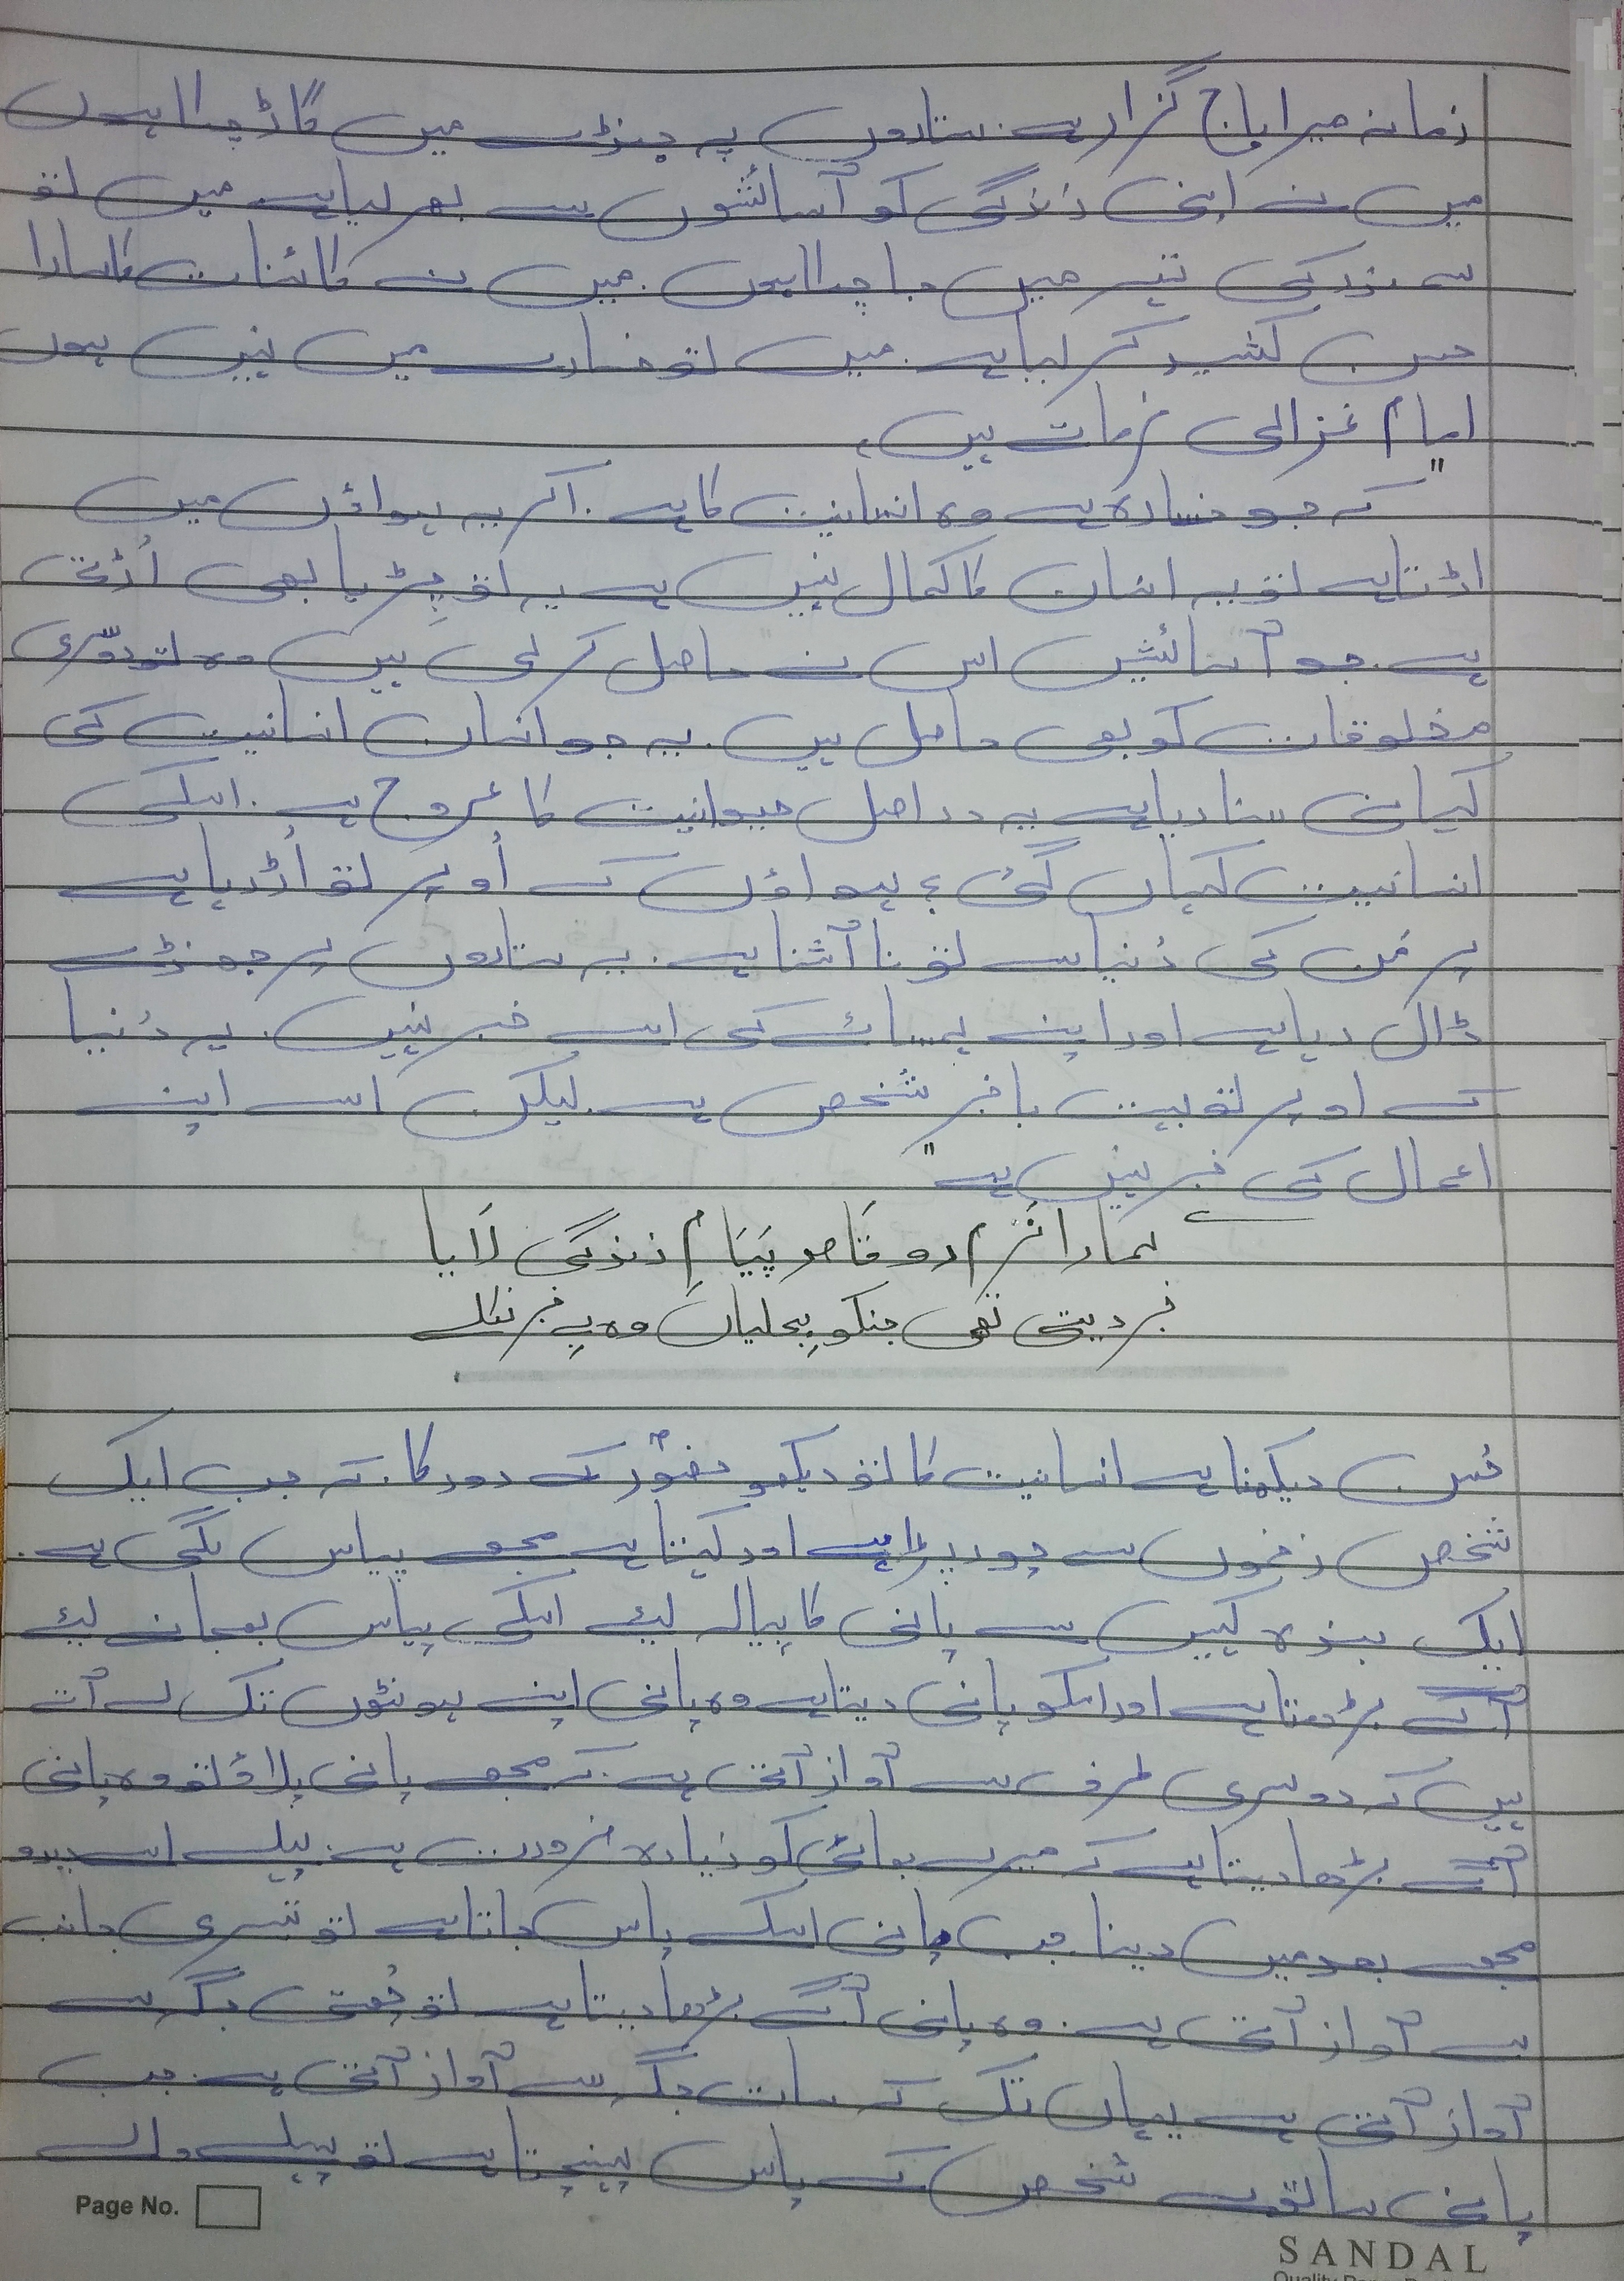 زمانہ میرا باج گزار ہے. ستاروں پہ جھنڈے میں گاڑ چلا ہوں
میں نے اپنی زندگی کو آسائشوں سے بھر لیا ہے میں تو
حسن کشید کر لیا ہے. میں تو خسارے میں نہیں ہوں
امام غزالی فرماتے ہیں،
"کہ جو خسارہ ہے وہ انسانیت کا ہے. اگر یہ ہواؤں میں
اڑتا ہے تو یہ انسان کا کمال نہیں ہے یہ تو چِڑیا بھی اُڑتی
ہے. جو آسائشیں اس نے حاصل کر لی ہیں وہ تو دوسری
مخلوقات کو بھی حاصل ہیں. یہ جو انسان انسانیت کی
کہانی سنا رہا ہے یہ دراصل حیوانیت کا عروج ہے. اسکی
انسانیت کہاں گئی؟ ہواؤں کے اُوپر تو اُڑ رہا ہے
پر مَن کی دُنیا سے تو نا آشنا ہے. یہ ستاروں پر جھنڈے
ڈال رہا ہے اور اپنے ہمسائے کی اسے خبر نہیں. یہ دُنیا
کے اوپر تو بہت باخبر شخص ہے. لیکن اسے اپنے
اعمال کی خبر نہیں ہے"
ہمارا نَرم رو قَاصد پَیَامِ زندگی لَایا
خبر دیتی تھی جنکو بِجلیاں وہ بِے خبر نکلے
حُسن دیکھنا ہے انسانیت کا تو دیکھو حضورؐ کے دور کا. کہ جب ایک
شخص زخموں سے چور پڑا ہے اور کہتا ہے مجھے پیاس لگی ہے.
ایک بندہ کہیں سے پانی کا پیالہ لیئے اسکی پیاس بجھانے لیئے
آگے بڑھتا ہے اور اسکو پانی دیتا ہے وہ پانی اپنے ہونٹوں تک لے آتے
ہیں کہ دوسری طرف سے آواز آتی ہے. کہ مجھے پانی پلاؤ تو وہ پانی
آگے بڑھا دیتا ہے کہ میرے بھائی کو زیادہ ضرورت ہے. پہلے اسے دو
مجھے بعد میں دینا. جب پانی اسکے پاس جاتا ہے تو تیسری جانب
سے آواز آتی ہے. وہ پانی آگے بڑھا دیتا ہے تو چُوتھی جگہ سے
آواز آتی ہے یہاں تک کہ سات جگہ سے آواز آتی ہے. جب
پانی ساتویں شخص کے پاس پہنچتا ہے تو پہلے والے
Page No.
SANDAL